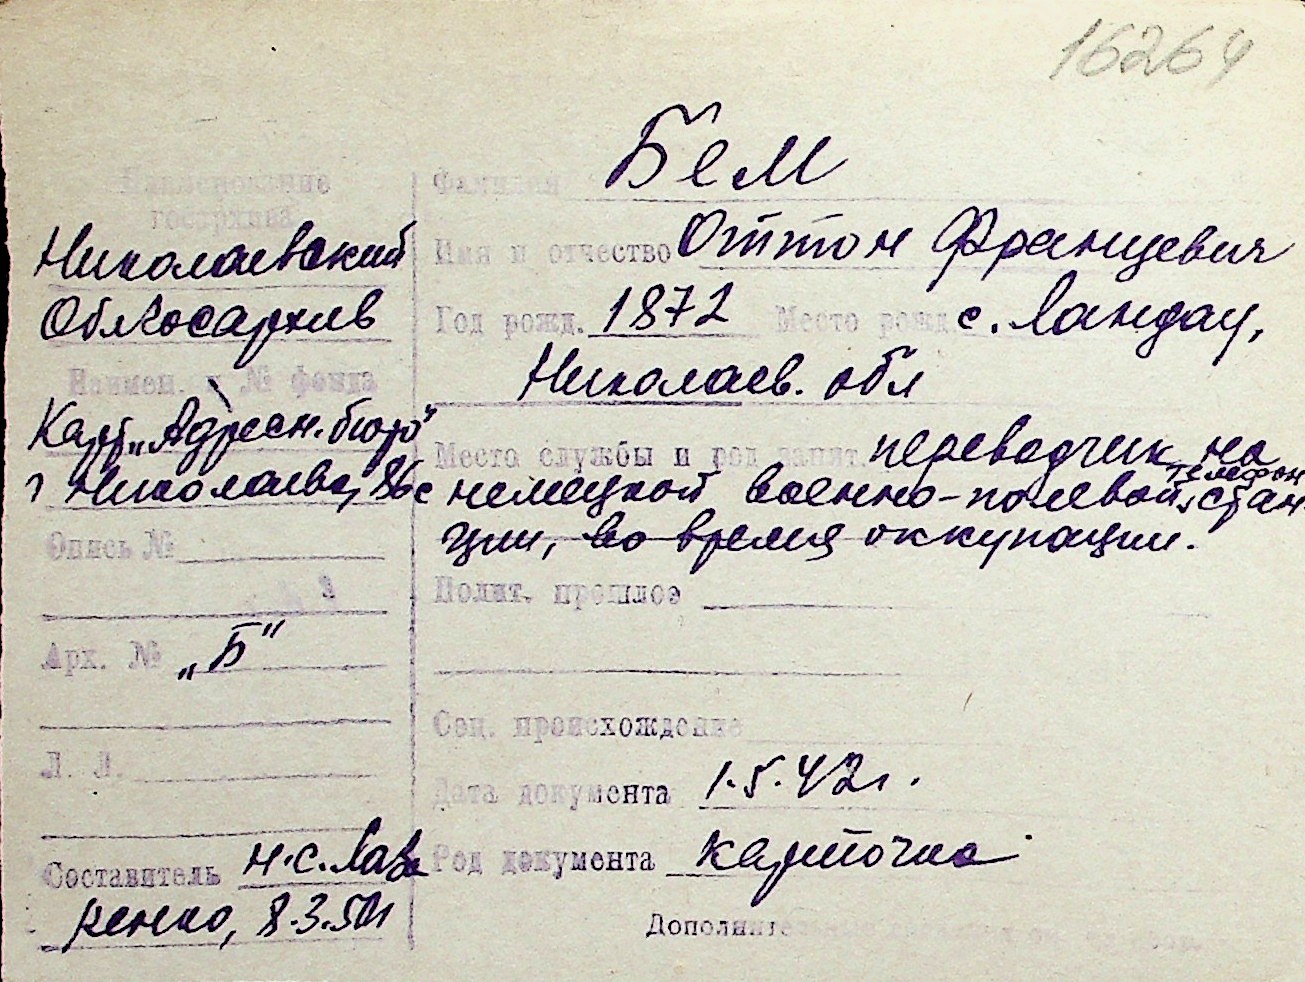 16264
Наименование
госархива
Николаевский
Облгосархив
Наимен. и № фонда
Карт. „Адресн. бюро“
г Николаева,
Опись №
Арх. № „Б“
Л. Л.
Составитель Н.С. Лавре
ненко, 8.3.50г
Фамилия Бем
Имя и отчество Оттон Францевич
Год рожд. 1872 Место рожд. с. Ландау,
Николаев. обл
Место службы и род занят. переводчик на
немецкой военно-полевой телефон. стан
ции, во время оккупации.
Полит. прошлое
Соц. происхождение
Дата документа 1.5.42г.
Род документа карточка